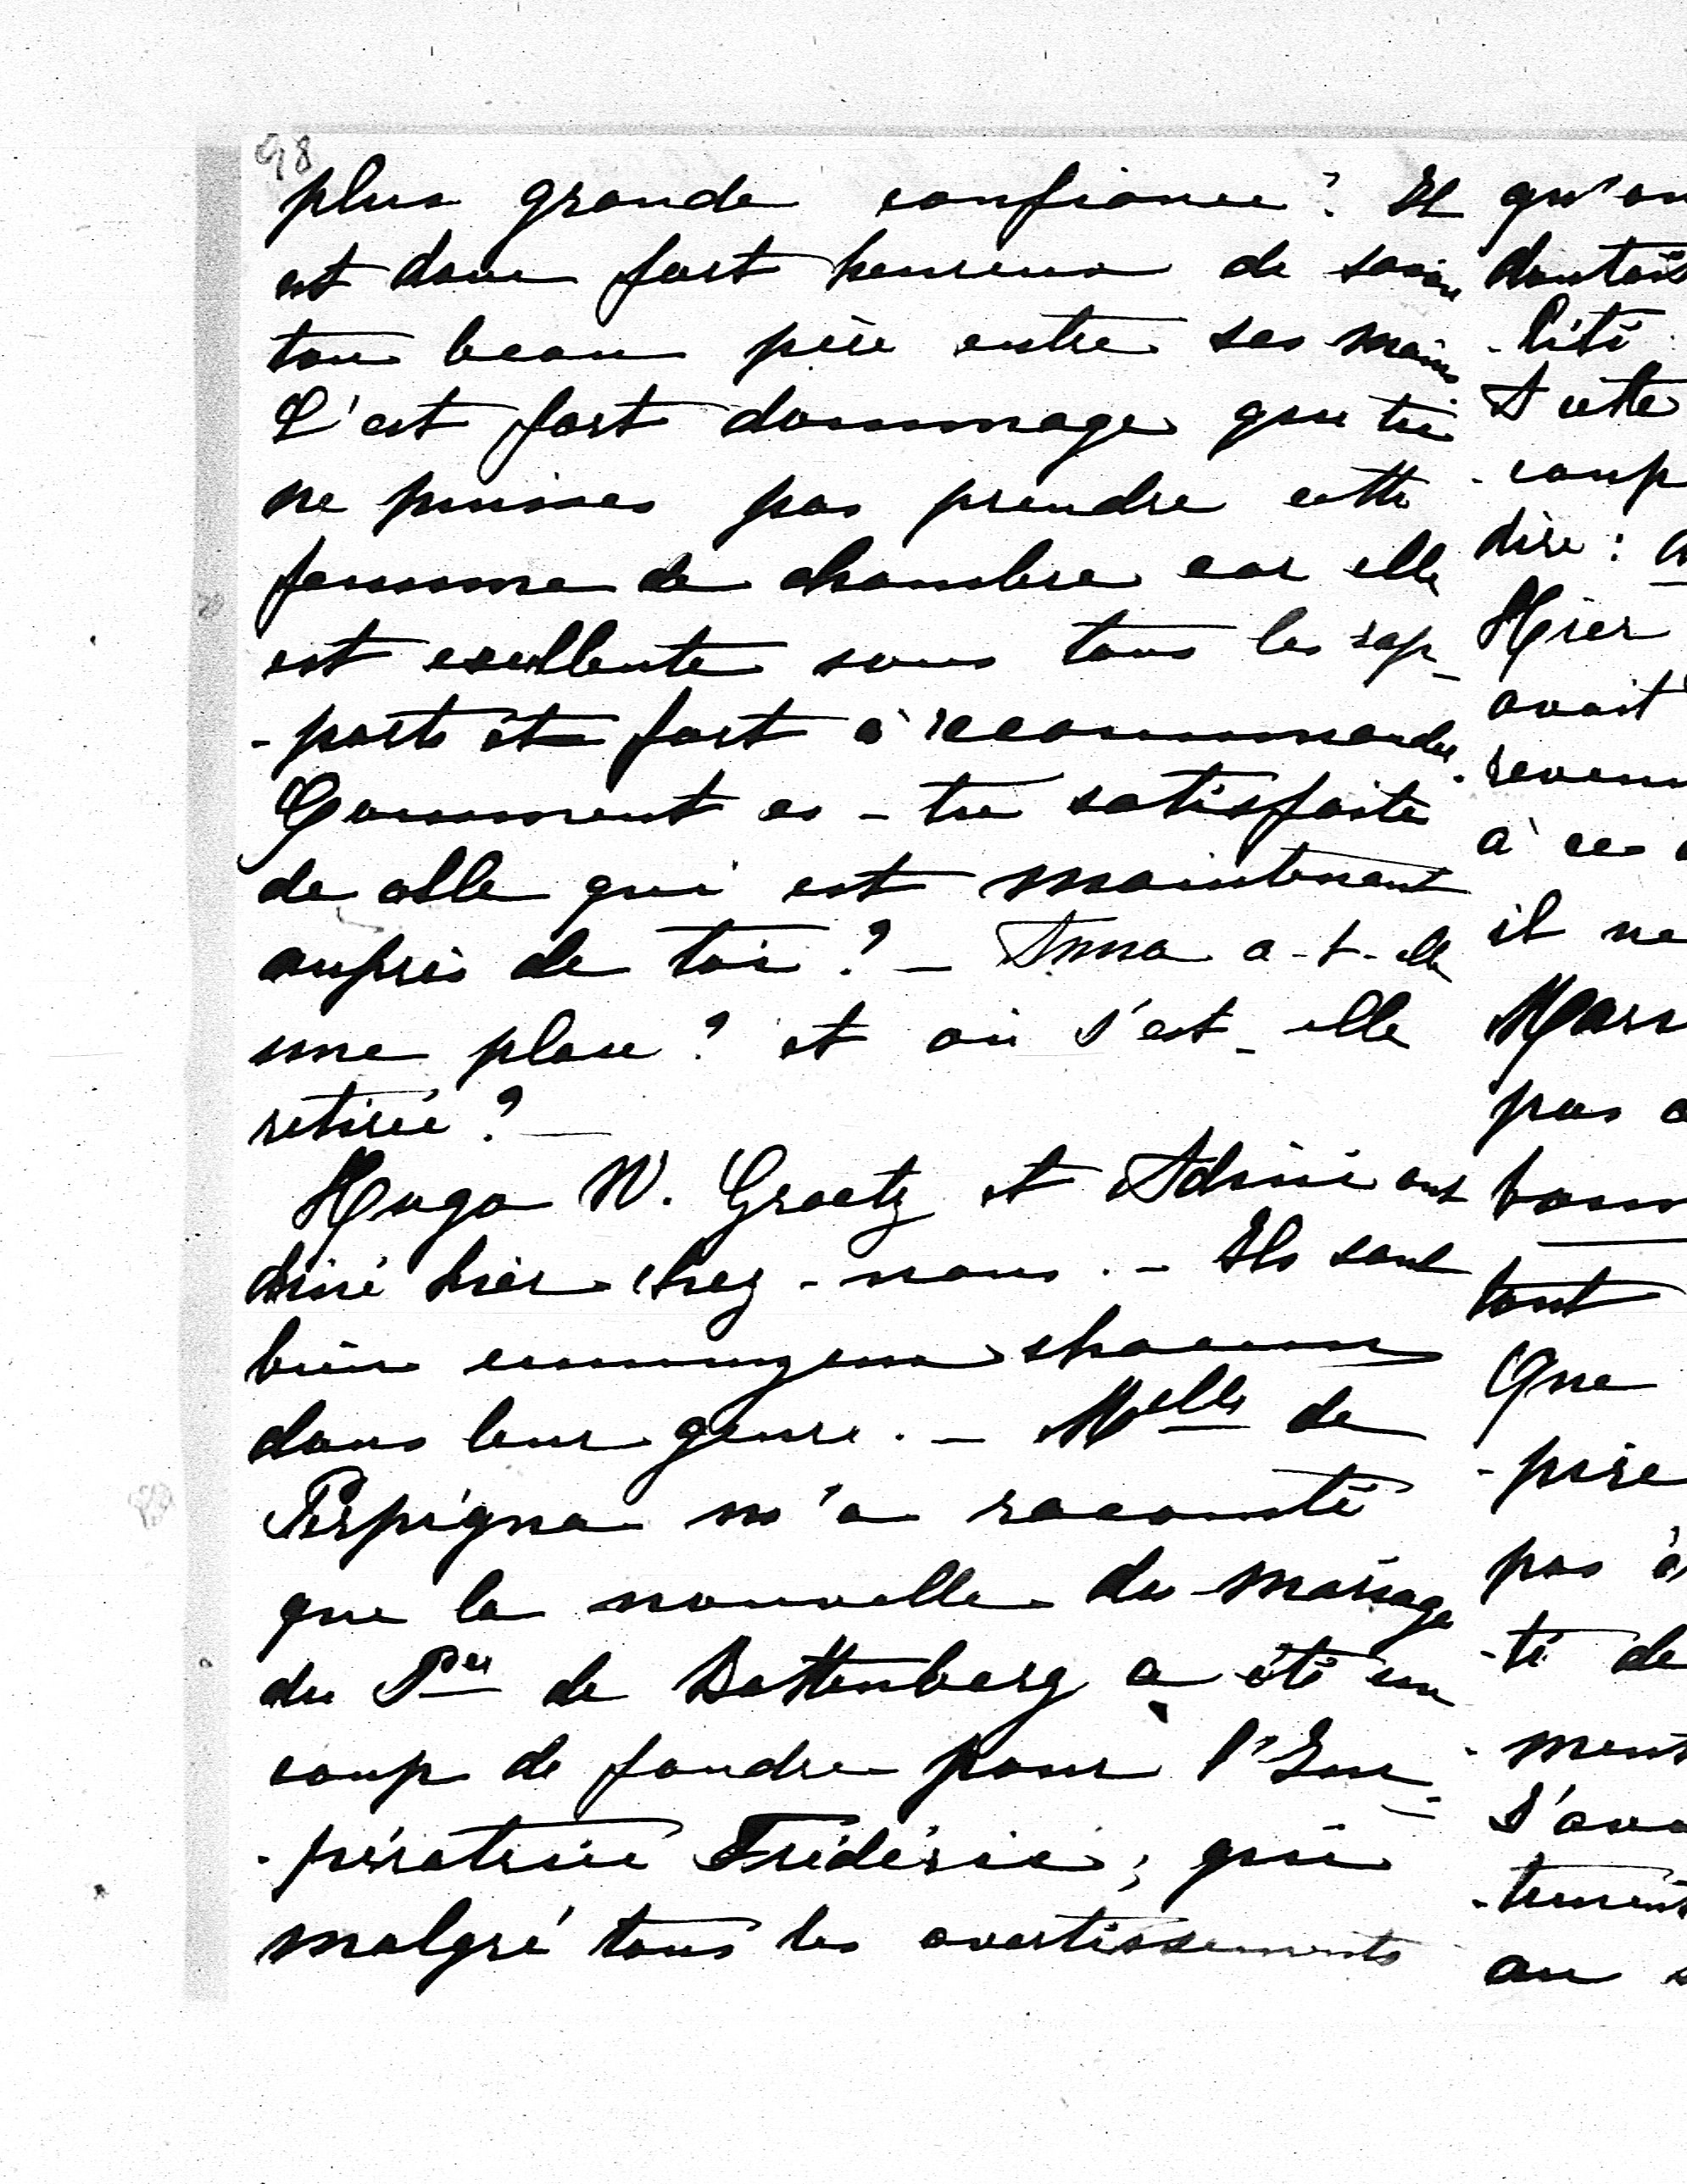 98
plus grande confiance ? Il
est donc fort heureux de savoir
ton beau père entre ses mains
C'est fort dommage que tu
ne puisses pas prendre cette
femme de chambre car elle
est exellente sous tous les rap-
-ports et fort à recommander.
Comment es-tu satisfaite
de celle qui est maintenant
auprès de toi ? — Anna a-t-elle
une place ? et où s'est-elle
retirée ? —
Hugo W. Graetz et Adini ont
diné hier chez-nous. — Ils sont
bien ennuyeux chacun
dans leur genre. — Melle de
Perpigna m'a raconté
que la nouvelle du mariage
du Pce de Battenberg a été un
coup de foudre pour l'Im-
-pératrice Frédéric ; qui
malgré tous les avertissements
qu'on
doutais
-lité
A cette
-coup
dire :
Hier
avait
revenu
à ces
il ne
pas
tout
Que
-pire
pas à
-té de
-ment
s'ava
-tement
au